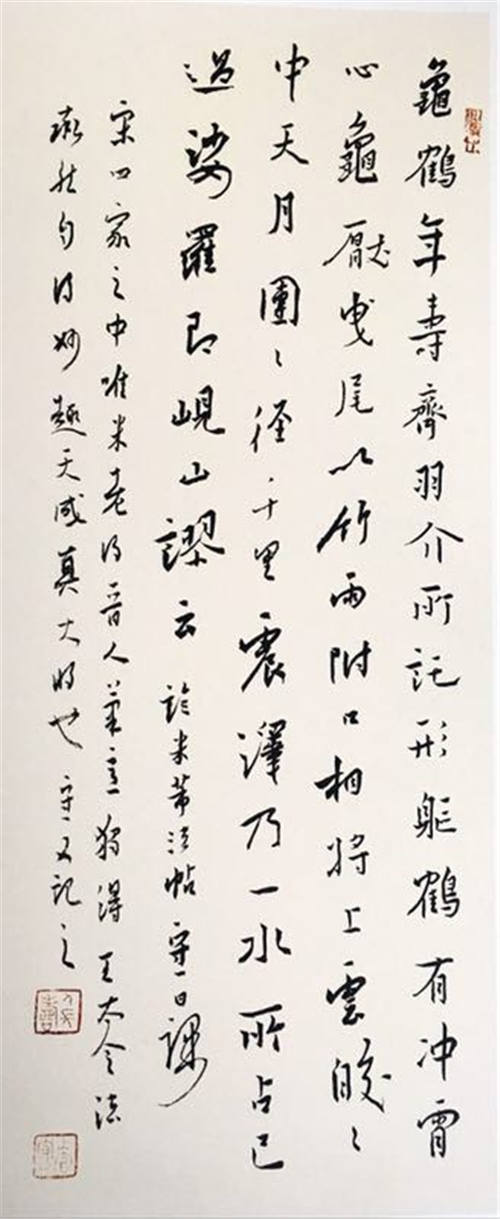 龜鶴年壽齊羽介所託形軀鶴有冲霄
心龜厭曳尾以竹兩附口相將上雲皎〻
中天月團〻徑千里震澤乃一水所占已
過娑羅即峴山謬云 臨米芾法帖 守一日課
宋四家之中唯米老得晋人筆意獨得王大令法
勾得妙趣天成真大好也 守一又記之